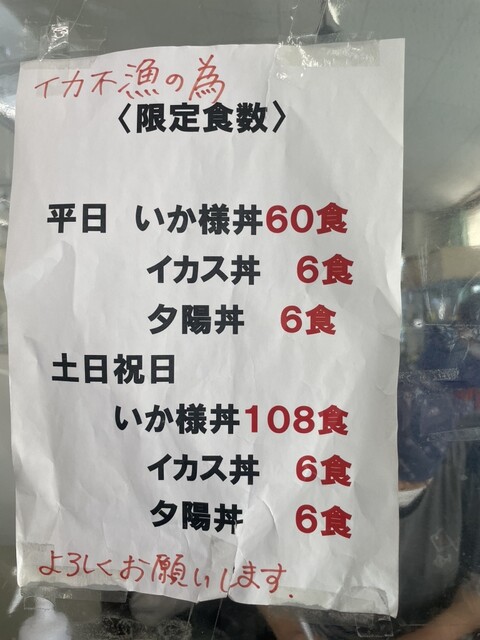 イカ不漁の為
〈限定食数〉
平日 いか様丼60食
イカス丼 6食
夕陽丼 6食
土日祝日
いか様丼108食
イカス丼 6食
夕陽丼 6食
よろしくお願いします.